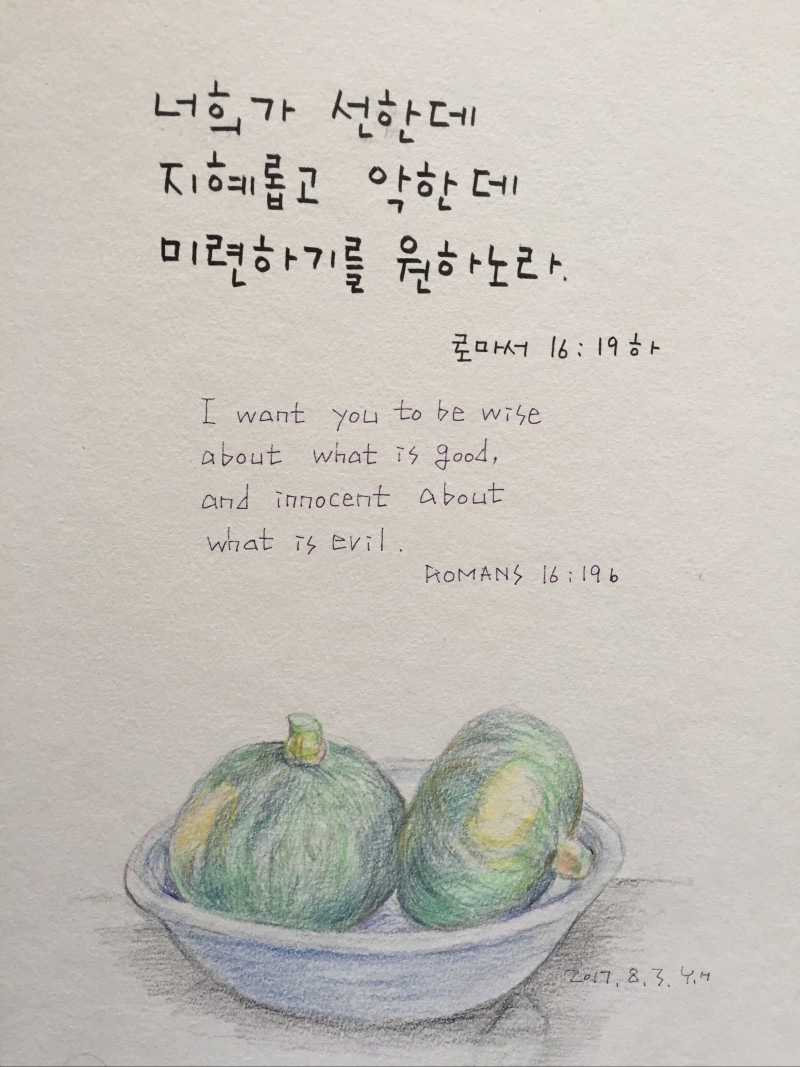 너희가 선한데
지혜롭고 악한데
미련하기를 원하노라.
로마서 16:19하
I want you to be wise
about what is good,
and innocent about
what is evil.
ROMANS 16:19b
2017. 8. 3. Y.H